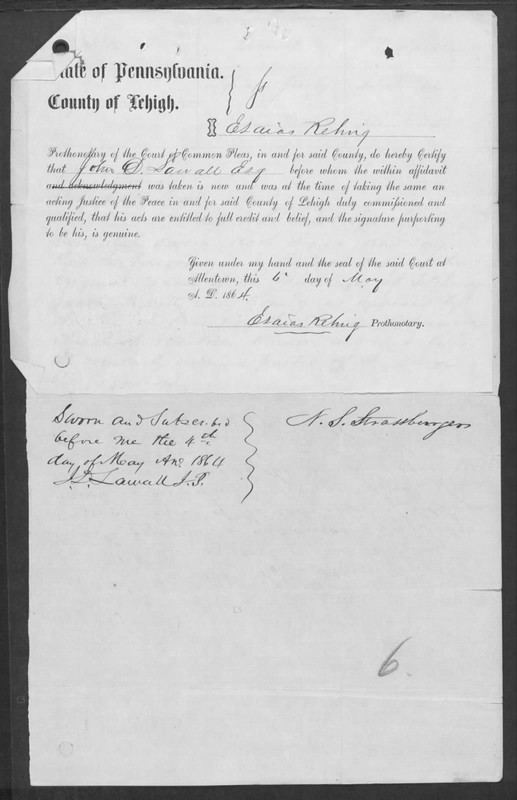 State of Pennsylvania.
County of Lehigh.
I Esaias Rehrig
Prothonotary of the Court of Common Pleas, in and for said County, do hereby Certify
that John D. Lawall Esq before whom the within affidavit
and acknowledgment was taken is now and was at the time of taking the same an
acting Justice of the Peace in and for said County of Lehigh duly commissioned and
qualified, that his acts are entitled to full credit and belief, and the signature purporting
to be his, is genuine.
Given under my hand and the seal of the said Court at
Allentown, this 6 day of May
A. D. 1864.
Esaias Rehrig Prothonotary.
Sworn and Subscribed
before me the 4th
day of May Ano 1864
J. D. Lawall J. P.
N. S. Strassburger
6.